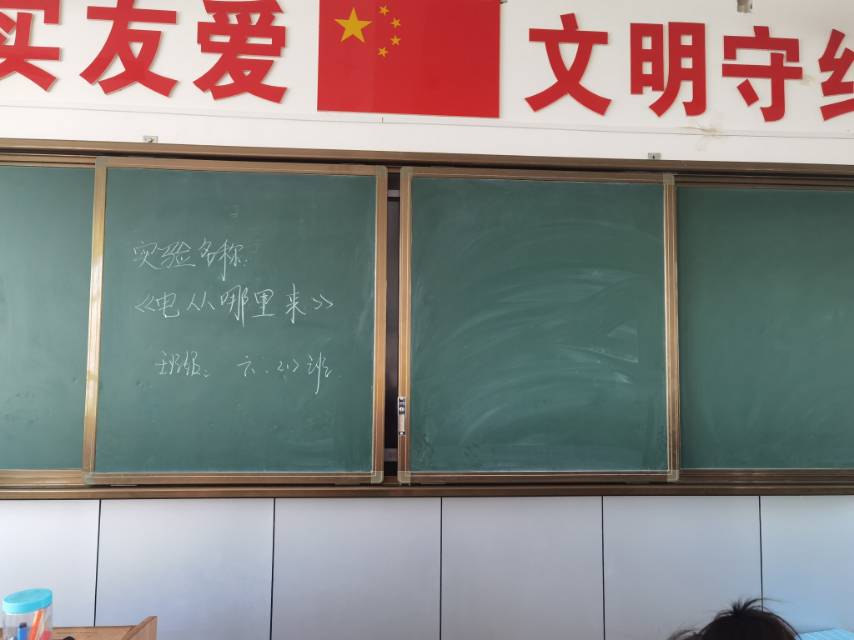 实友爱 文明守纪
实验名称:
《电从哪里来》
班级: 六.(2)班